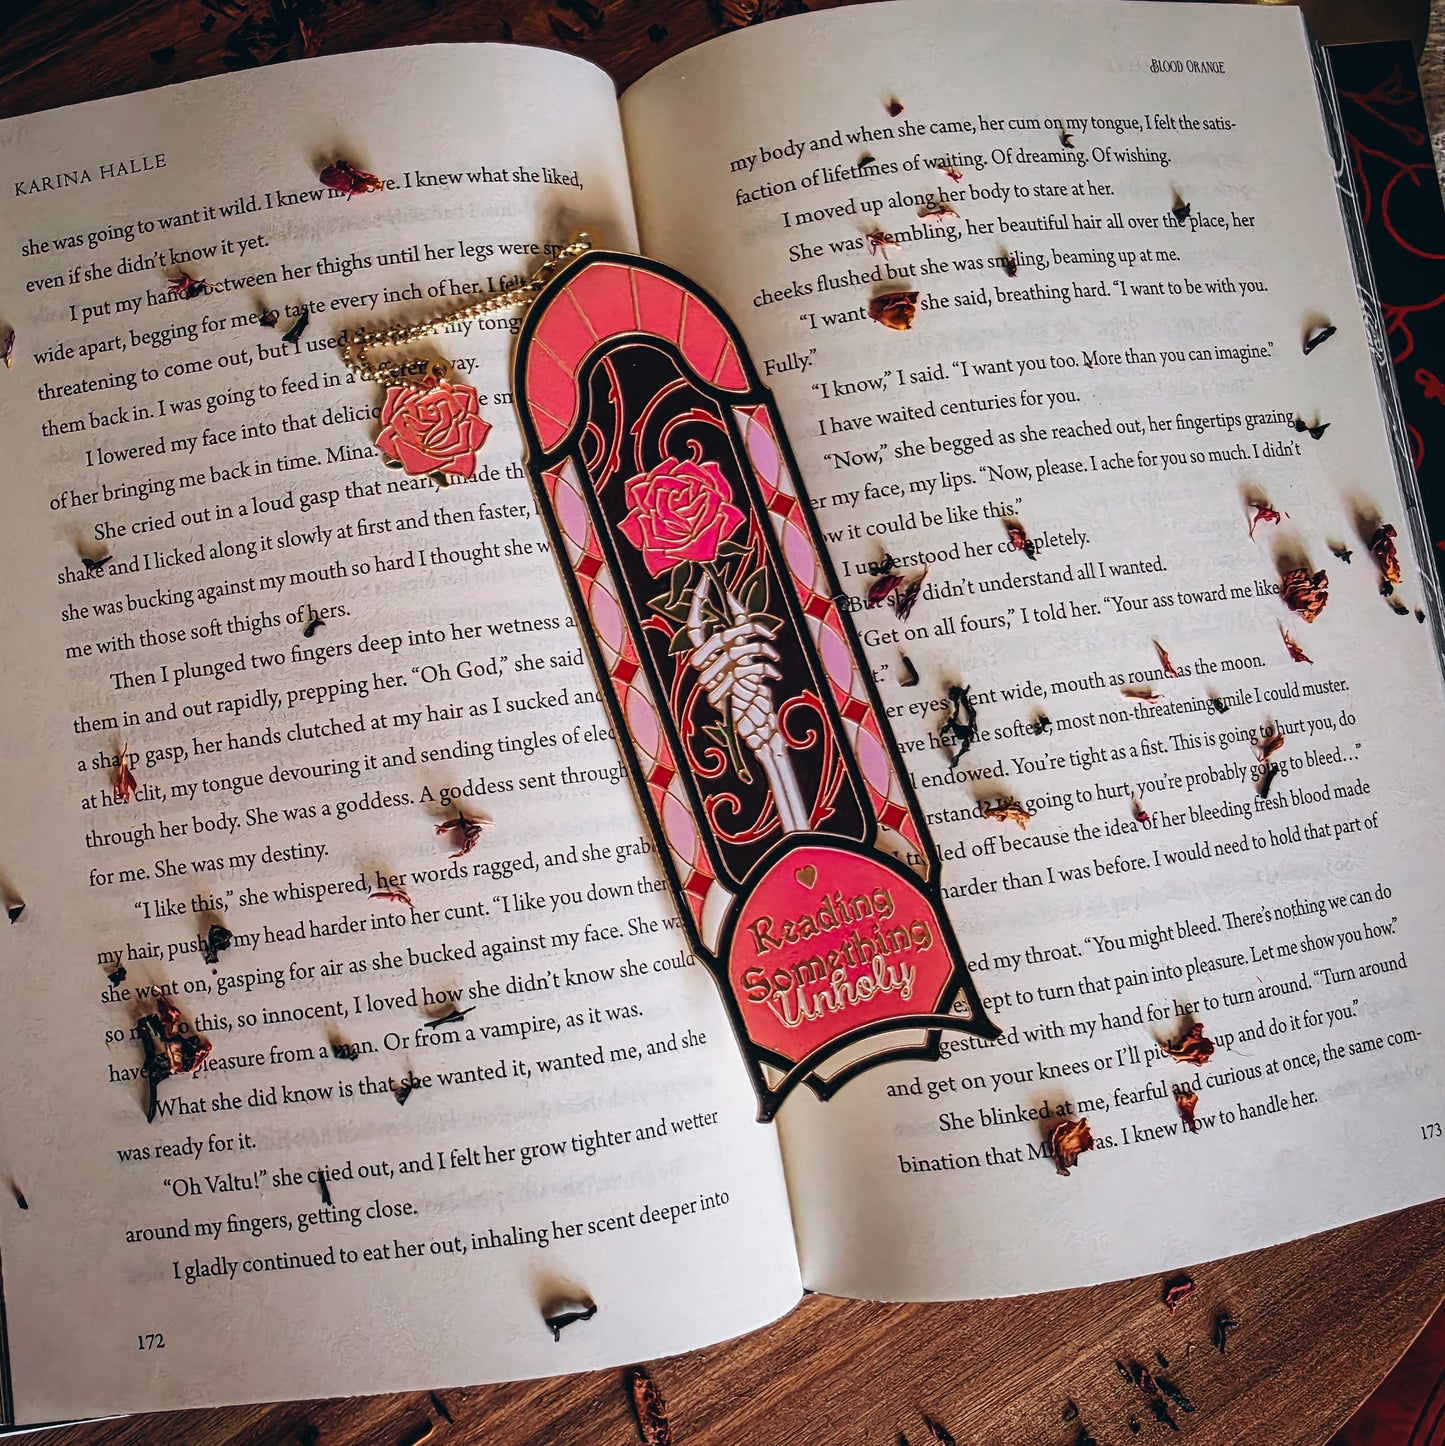 KARINA HALLE
she was going to want it wild. I knew I knew what she liked,
even if she didn't know it yet.
I put my hands between her thighs until her legs were
wide apart, begging for me to taste every inch of her. I felt
threatening to come out, but I used my
them back in. I was going to feed in a way.
I lowered my face into that
of her bringing me back in time. Mina.
She cried out in a loud gasp that nearly made
shake and I licked along it slowly at first and then faster,
she was bucking against my mouth so hard I thought she
me with those soft thighs of hers.
Then I plunged two fingers deep into her wetness
them in and out rapidly, prepping her. “Oh God,” she said
a sharp gasp, her hands clutched at my hair as I sucked
at her clit, my tongue devouring it and sending tingles of
through her body. She was a goddess. A goddess sent through
for me. She was my destiny.
“I like this,” she whispered, her words ragged, and she
my hair, my head harder into her cunt. “I like you down
she went on, gasping for air as she bucked against my face. She
so to this, so innocent, I loved how she didn't know she could
have pleasure from a man. Or from a vampire, as it was.
What she did know is that she wanted it, wanted me, and she
was ready for it.
“Oh Valtu!” she cried out, and I felt her grow tighter and wetter
around my fingers, getting close.
I gladly continued to eat her out, inhaling her scent deeper into
172
BLOOD ORANGE
my body and when she came, her cum on my tongue, I felt the satis-
faction of lifetimes of waiting. Of dreaming. Of wishing.
I moved up along her body to stare at her.
She was trembling, her beautiful hair all over the place, her
cheeks flushed but she was smiling, beaming up at me.
“I want she said, breathing hard. “I want to be with you.
Fully.”
“I know,” I said. “I want you too. More than you can imagine.”
I have waited centuries for you.
“Now,” she begged as she reached out, her fingertips grazing
my face, my lips. “Now, please. I ache for you so much. I didn't
it could be like this.”
I understood her completely.
But she didn't understand all I wanted.
“Get on all fours,” I told her. “Your ass toward me like
eyes went wide, mouth as round as the moon.
her the softest, most non-threatening smile I could muster.
endowed. You're tight as a fist. This is going to hurt you, do
It's going to hurt, you're probably going to bleed…”
off because the idea of her bleeding fresh blood made
harder than I was before. I would need to hold that part of
my throat. “You might bleed. There's nothing we can do
to turn that pain into pleasure. Let me show you how.”
gestured with my hand for her to turn around. “Turn around
and get on your knees or I'll pick up and do it for you.”
She blinked at me, fearful and curious at once, the same com-
bination that was. I knew how to handle her.
173
Reading
Something
Unholy